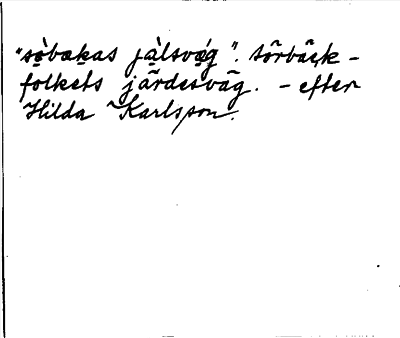 "sòbakas jàlsvæ̀g". Sörbäck-
folkets järdesväg. - efter
Hilda Karlsson.